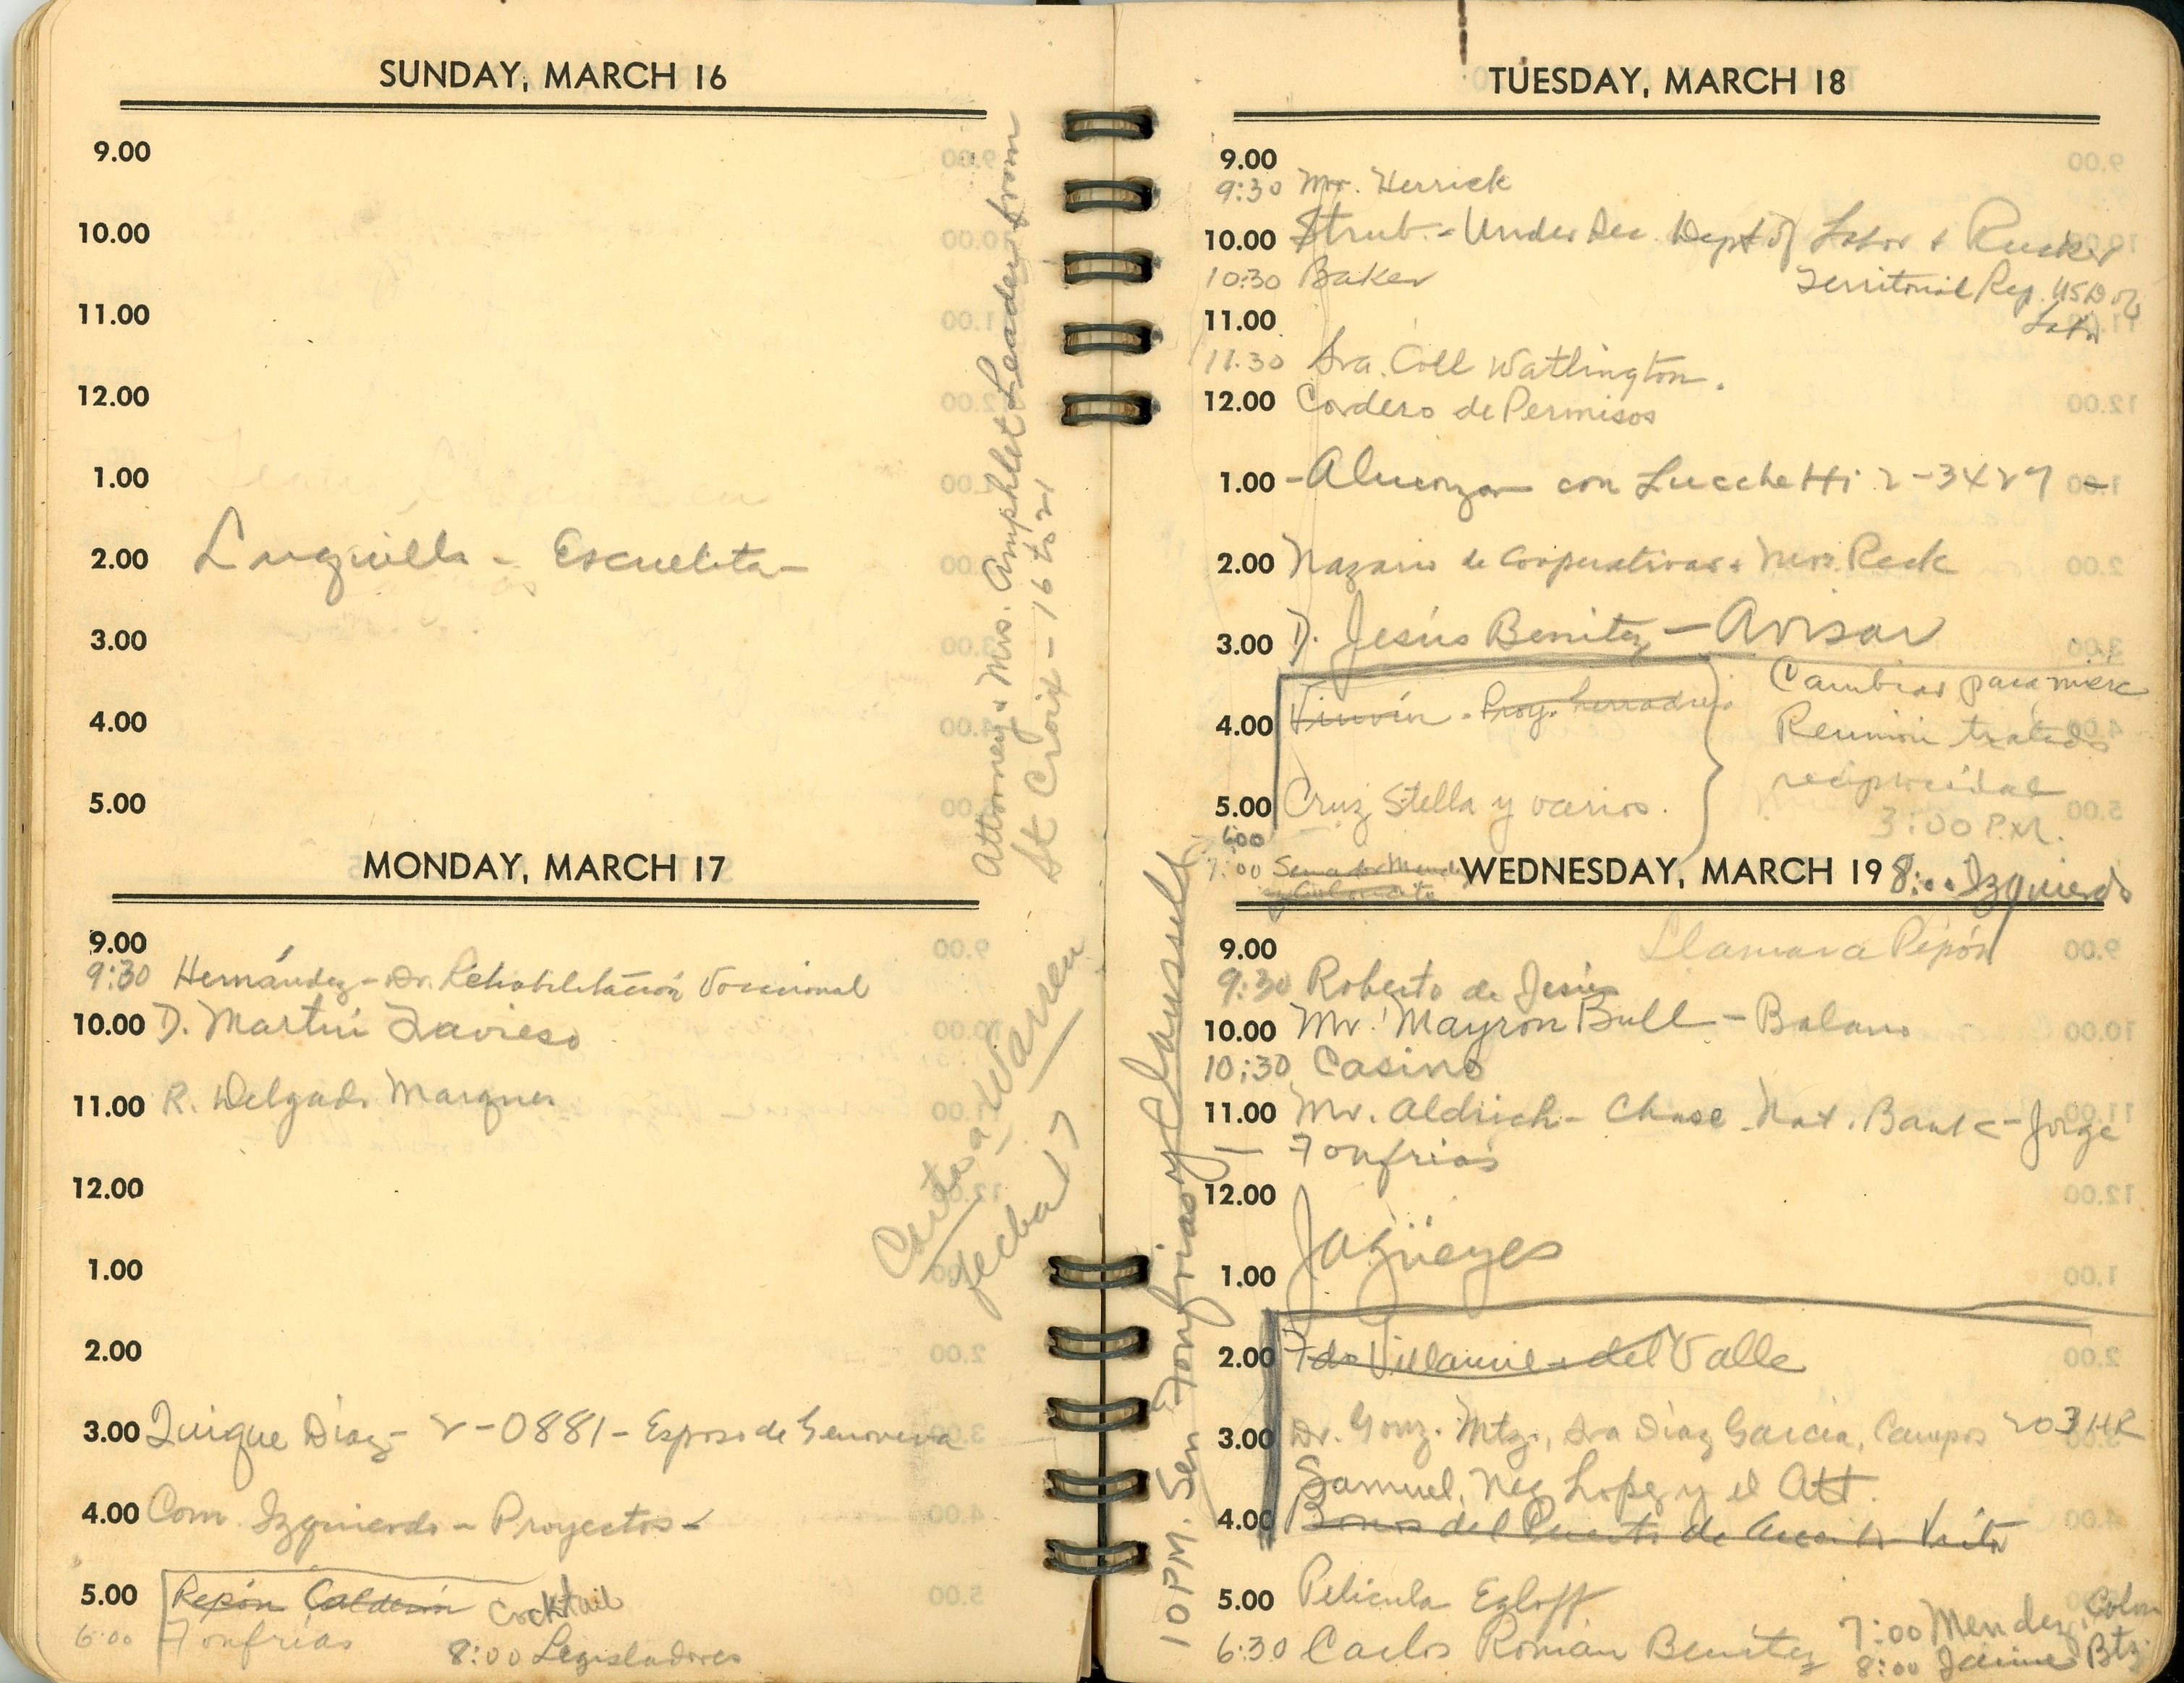 SUNDAY, MARCH 16
9.00
10.00
11.00
12.00
1.00
2.00 Luquillo - Escuelita -
3.00
4.00
5.00
Attorney & Mrs. Amphlet Leader from
St Croix - 16 to 21
MONDAY, MARCH 17
9.00
9:30 Hernández - Dr. Rehabilitación Vocacional
10.00 D. Martín Travieso
11.00 R. Delgado Marquez
12.00
1.00
2.00
3.00 Quique Díaz - 2-0881 - Esposo de Genoveva
4.00 Com. Izquierdo - Proyectos -
5.00 Pepón Calderón Cocktail
6:00 Fonfrías
8:00 Legisladores
Carta a Warren
fecha 17
TUESDAY, MARCH 18
9.00
9:30 Mr. Herrick
10.00 Strub. - Under Sec. Dept of Labor & Rucker
Territorial Rep. USD of
Labor
10:30 Baker
11.00
11:30 Sra. Coll Watlington.
12.00 Cordero de Permisos
1.00 - Almorzar con Lucchetti 2-3427 -
2.00 Nazario de Cooperativas & Mrs. Reck
3.00 D. Jesús Benítez - Avisar
4.00 - Proy.
Cambiar para mierc
Reunión tratado
reciprocidad
3:00 P.M.
5.00 Cruz, Stella y varios.
6:00
7:00 Senador Mendez
8:00 Izquierdo
WEDNESDAY, MARCH 19
Llamar a Pepón
9.00
9:30 Roberto de Jesús
10.00 Mr. Mayron Bull - Bolano
10:30 Casino
11.00 Mr. Aldrich - Chase Nat. Bank - Jorge
- Fonfrías
12.00
Jagüeyes
1.00
2.00 Fdo Villamil - del Valle
3.00 Dr. Gonz. Mtz., Sra Díaz García, Campos 203 HR
Samuel, Neg. López y el Att.
4.00 Bonos del Puerto de
5.00 Película Egloff
6:30 Carlos Román Benítez
7:00 Mendez, Colon
8:00 Jaime Btz.
10 PM. Sen Fonfrías y Clausells